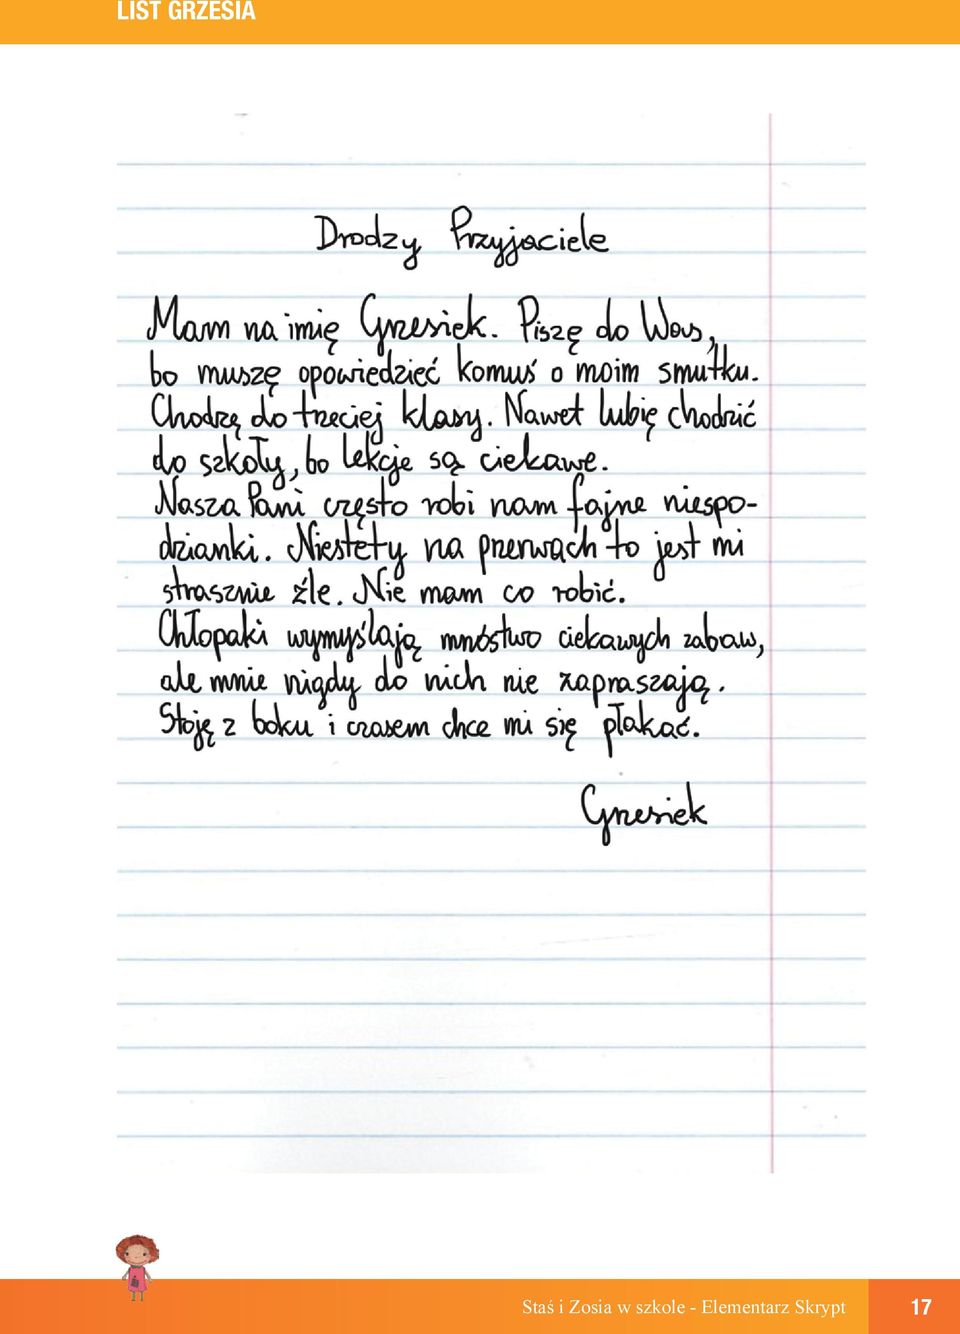 LIST GRZESIA
Drodzy Przyjaciele
Mam na imię Grzesiek. Piszę do Was,
bo muszę opowiedzieć komuś o moim smutku.
Chodzę do trzeciej klasy. Nawet lubię chodzić
do szkoły, bo lekcje są ciekawe.
Nasza Pani często robi nam fajne niespo-
dzianki. Niestety na przerwach to jest mi
strasznie źle. Nie mam co robić.
Chłopaki wymyślają mnóstwo ciekawych zabaw,
ale mnie nigdy do nich nie zapraszają.
Stoję z boku i czasem chce mi się płakać.
Grzesiek
Staś i Zosia w szkole - Elementarz Skrypt 17